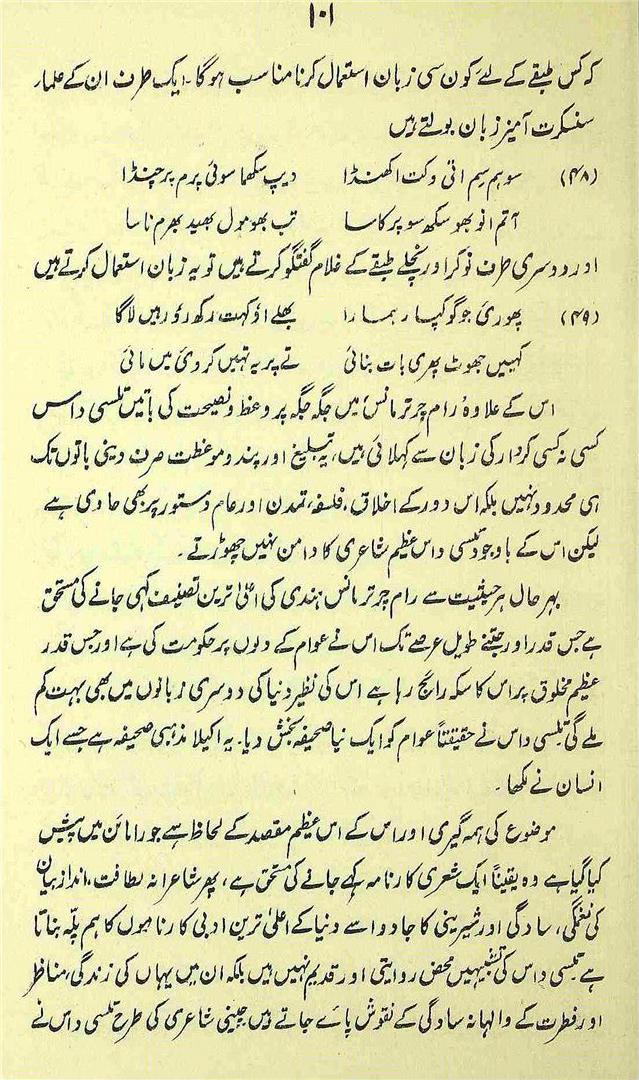 ۱۰۱
کہ کس طبقے کے لئے کون سی زبان استعمال کرنا مناسب ہوگا۔ ایک طرف ان کے علماء
سنسکرت آمیز زبان بولتے ہیں
(۴۸) سوہم سیم اتی وکت اکھنڈا دیپ سکھا سوئی پرم پرچنڈا
آتم انوبھو سکھ سو پرکاسا تب بھومول بھید بھرم ناسا
اور دوسری طرف نوکر اور نچلے طبقے کے غلام گفتگو کرتے ہیں تو یہ زبان استعمال کرتے ہیں
(۴۹) پھوری جوگو کپار ہمارا بھلے اؤ کہت رکھ رؤرہیں لاگا
کہیں جھوٹ پھری بات بنائی تے پریہ تہیں کروی میں مائی
اس کے علاوہ رام چرتر مانس میں جگہ جگہ پر وعظ و نصیحت کی باتیں تلسی داس
کسی نہ کسی کردار کی زبان سے کہلائی ہیں، یہ تبلیغ اور پند و موعظت صرف دینی باتوں تک
ہی محدود نہیں بلکہ اس دور کے اخلاق، فلسفہ، تمدن اور عام دستور پر بھی حاوی ہے
لیکن اس کے باوجود تلسی داس عظیم شاعری کا دامن نہیں چھوڑتے۔
بہر حال ہر حیثیت سے رام چرتر مانس ہندی کی اعلیٰ ترین تصنیف کہی جانے کی مستحق
ہے جس قدر اور جتنے طویل عرصے تک اس نے عوام کے دلوں پر حکومت کی ہے اور جس قدر
عظیم مخلوق پر اس کا سکہ رائج رہا ہے اس کی نظیر دنیا کی دوسری زبانوں میں بھی بہت کم
ملے گی تلسی داس نے حقیقتاً عوام کو ایک نیا صحیفہ بخش دیا۔ یہ اکیلا مذہبی صحیفہ ہے جسے ایک
انسان نے لکھا۔
موضوع کی ہمہ گیری اور اس کے اس عظیم مقصد کے لحاظ سے جو رامائن میں پیش
کیا گیا ہے وہ یقیناً ایک شعری کارنامہ کہے جانے کی مستحق ہے، پھر شاعرانہ لطافت، انداز بیان
کی نغمگی، سادگی اور شیرینی کا جادو اسے دنیا کے اعلیٰ ترین ادبی کارناموں کا ہم پلّہ بناتا
ہے تلسی داس کی تشبیہیں محض روایتی اور قدیم نہیں ہیں بلکہ ان میں یہاں کی زندگی، مناظر
اور فطرت کے والہانہ سادگی کے نقوش پائے جاتے ہیں چینی شاعری کی طرح تلسی داس نے